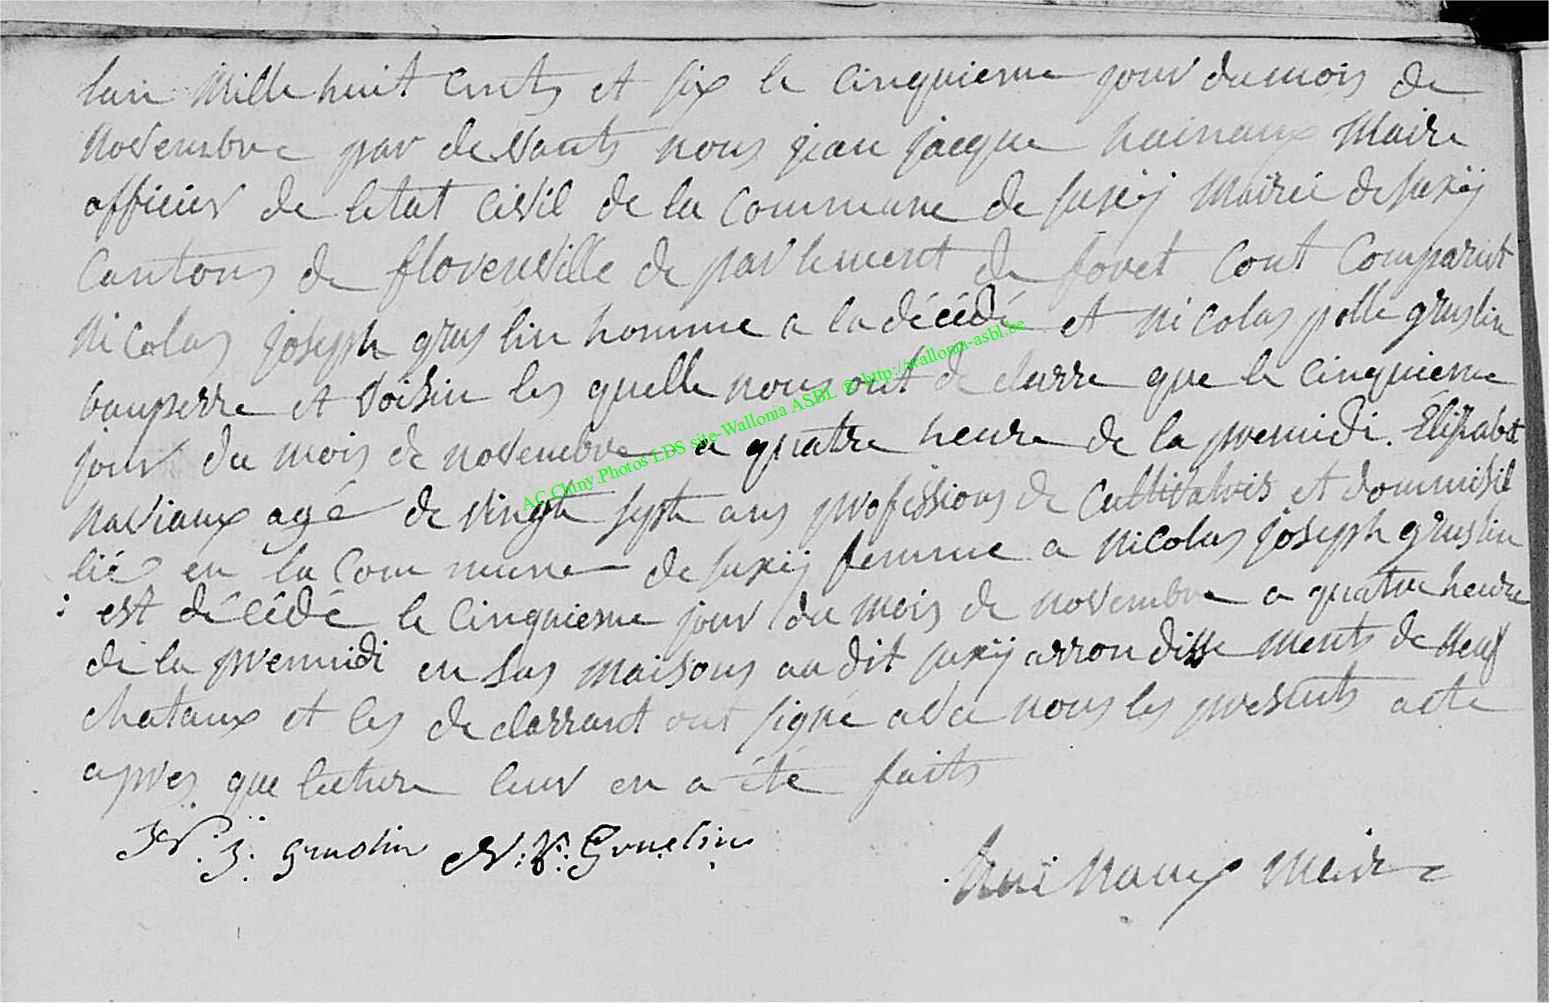 lan Mille huit Cents et six le cinquieme jour du mois de
Novembre par devants nous jean jacque hainaux Maire
officier de letat civil de la Commune de suxÿ Mairie de suxÿ
Cantons de florenville de partement de foret Cont Comparut
Nicolas joseph gruslin homme a la décédé et Nicolas polle gruslin
bauperre et Voisin les quelle nous ont de clarre que le cinquieme
jour du mois de novembre a quatre heure de la premidi. Elisabet
naviaux agé de vingte septe ans professions de Cultivatris et dommisil
lié en la Com mune de suxÿ femme a Nicolas joseph gruslin
: est décédé le cinquieme jour du mois de novembre a quatre heure
de la premidi en sas maisons au dit suxÿ arron disse ments de Neuf
chataux et les de clarrant ont signé avec nous les presents acte
apres que lecture leur en a été faits
N. j. Gruslin N. P. Gruslin
hainaux Maire
AC Chiny Photos LDS site-Wallonia ASBL © http://wallonia-asbl.be